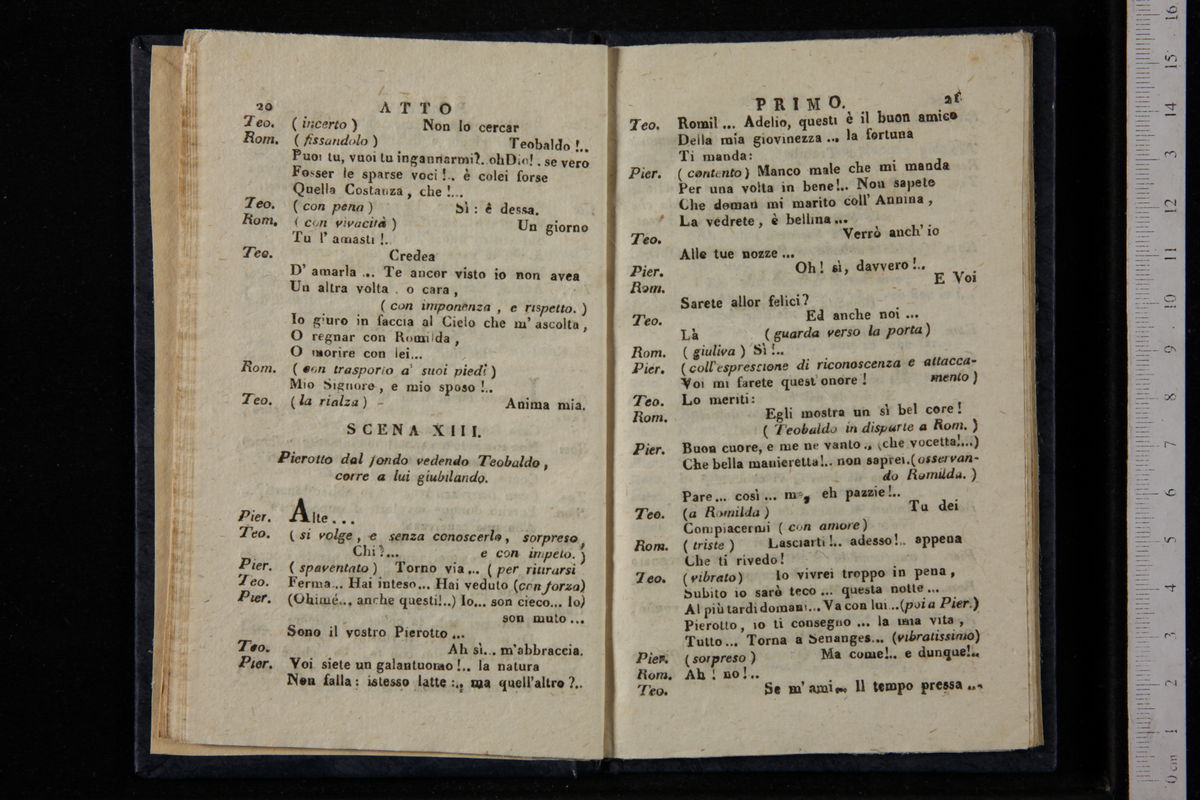 20 ATTO
Teo. (incerto) Non lo cercar
Rom. (fissandolo) Teobaldo!..
Puoi tu, vuoi tu ingannarmi?..ohDio!. se vero
Fosser le sparse voci!.. è colei forse
Quella Costanza, che!...
Teo. (con pena) Sì: è dessa.
Rom. (con vivacità) Un giorno
Tu l'amasti!.
Teo. Credea
D'amarla... Te ancor visto io non avea
Un altra volta. o cara,
(con imponenza, e rispetto.)
Io giuro in faccia al Cielo che m'ascolta,
O regnar con Romilda,
O morire con lei...
Rom. (con trasporto a' suoi piedi)
Mio Signore, e mio sposo!..
Teo. (la rialza) - Anima mia.
SCENA XIII.
Pierotto dal fondo vedendo Teobaldo,
corre a lui giubilando.
Pier. Alte...
Teo. (si volge, e senza conoscerlo, sorpreso,
Chi?... e con impeto.)
Pier. (spaventato) Torno via... (per ritirarsi
Teo. Ferma... Hai inteso... Hai veduto (con forza)
Pier. (Ohimé... anche questi!..) Io... son cieco... Io)
son muto...
Sono il vostro Pierotto...
Teo. Ah sì... m'abbraccia.
Pier. Voi siete un galantuomo!.. la natura
Non falla: istesso latte:.. ma quell'altro?..
PRIMO. 21
Teo. Romil... Adelio, questi è il buon amico
Della mia giovinezza... la fortuna
Ti manda:
Pier. (contento) Manco male che mi manda
Per una volta in bene!.. Non sapete
Che doman mi marito coll'Annina,
La vedrete, è bellina...
Teo. Verrò anch'io
Alle tue nozze...
Pier. Oh! sì, davvero!..
Rom. E Voi
Sarete allor felici?
Teo. Ed anche noi...
Là (guarda verso la porta)
Rom. (giuliva) Sì!..
Pier. (coll'espressione di riconoscenza e attacca-
Voi mi farete quest'onore! mento)
Teo. Lo meriti:
Rom. Egli mostra un sì bel core!
(Teobaldo in disparte a Rom.)
Pier. Buon cuore, e me ne vanto.. (che vocetta!...)
Che bella manieretta!.. non saprei.(osservan-
do Romilda.)
Pare... così... ma, eh pazzie!..
Teo. (a Romilda) Tu dei
Compiacermi (con amore)
Rom. (triste) Lasciarti!.. adesso!.. appena
Che ti rivedo!
Teo. (vibrato) Io vivrei troppo in pena,
Subito io sarò teco... questa notte...
Al più tardi domani... Va con lui...(poi a Pier.)
Pierotto, io ti consegno... la mia vita,
Tutto... Torna a Senanges... (vibratissimo)
Pier. (sorpreso) Ma come!.. e dunque!..
Rom. Ah! no!..
Teo. Se m'ami... Il tempo pressa...